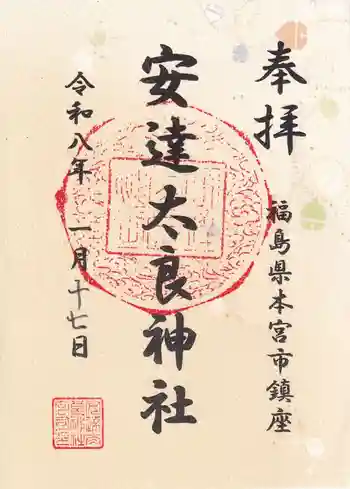 奉拝
福島県本宮市鎮座
安達太良神社
令和八年 一月十七日